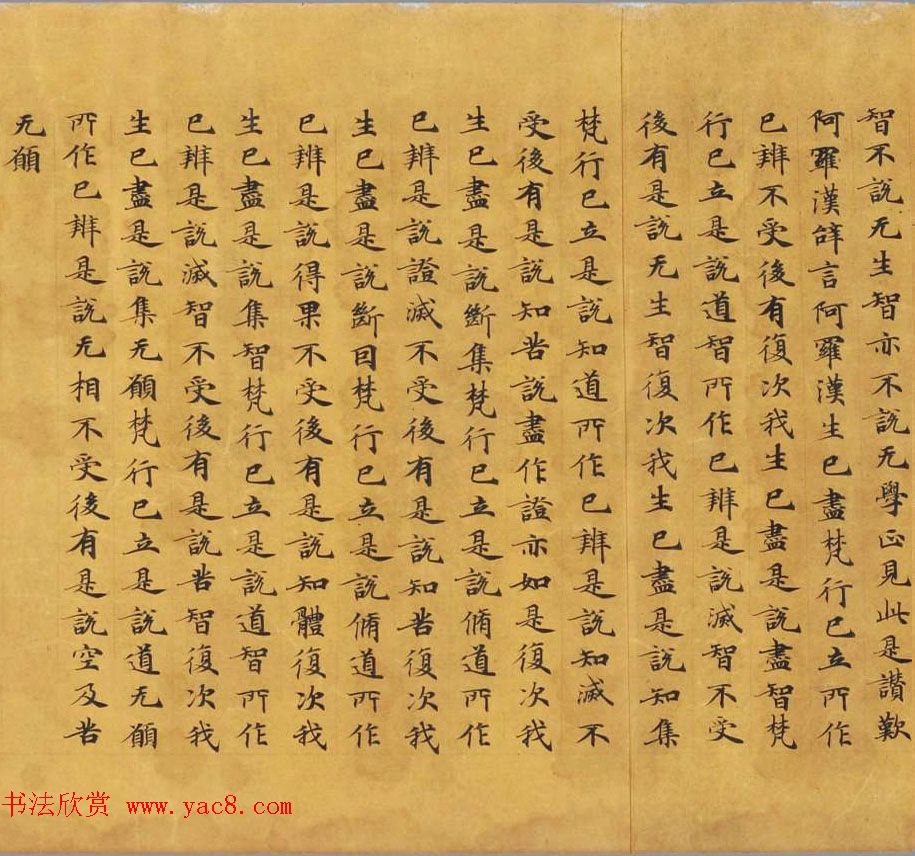 智不說无生智亦不說无學正見此是讚歎
阿羅漢辝言阿羅漢生已盡梵行已立所作
已辨不受後有復次我生已盡是說盡智梵
行已立是說道智所作已辨是說滅智不受
後有是說无生智復次我生已盡是說知集
梵行已立是說知道所作已辨是說知滅不
受後有是說知苦說盡作證亦如是復次我
生已盡是說斷集梵行已立是說脩道所作
已辨是說證滅不受後有是說知苦復次我
生已盡是說斷因梵行已立是說脩道所作
已辨是說得果不受後有是說知體復次我
生已盡是說集智梵行已立是說道智所作
已辨是說滅智不受後有是說苦智復次我
生已盡是說集无願梵行已立是說道无願
所作已辨是說无相不受後有是說空及苦
无願
书法欣赏 www.yac8.com